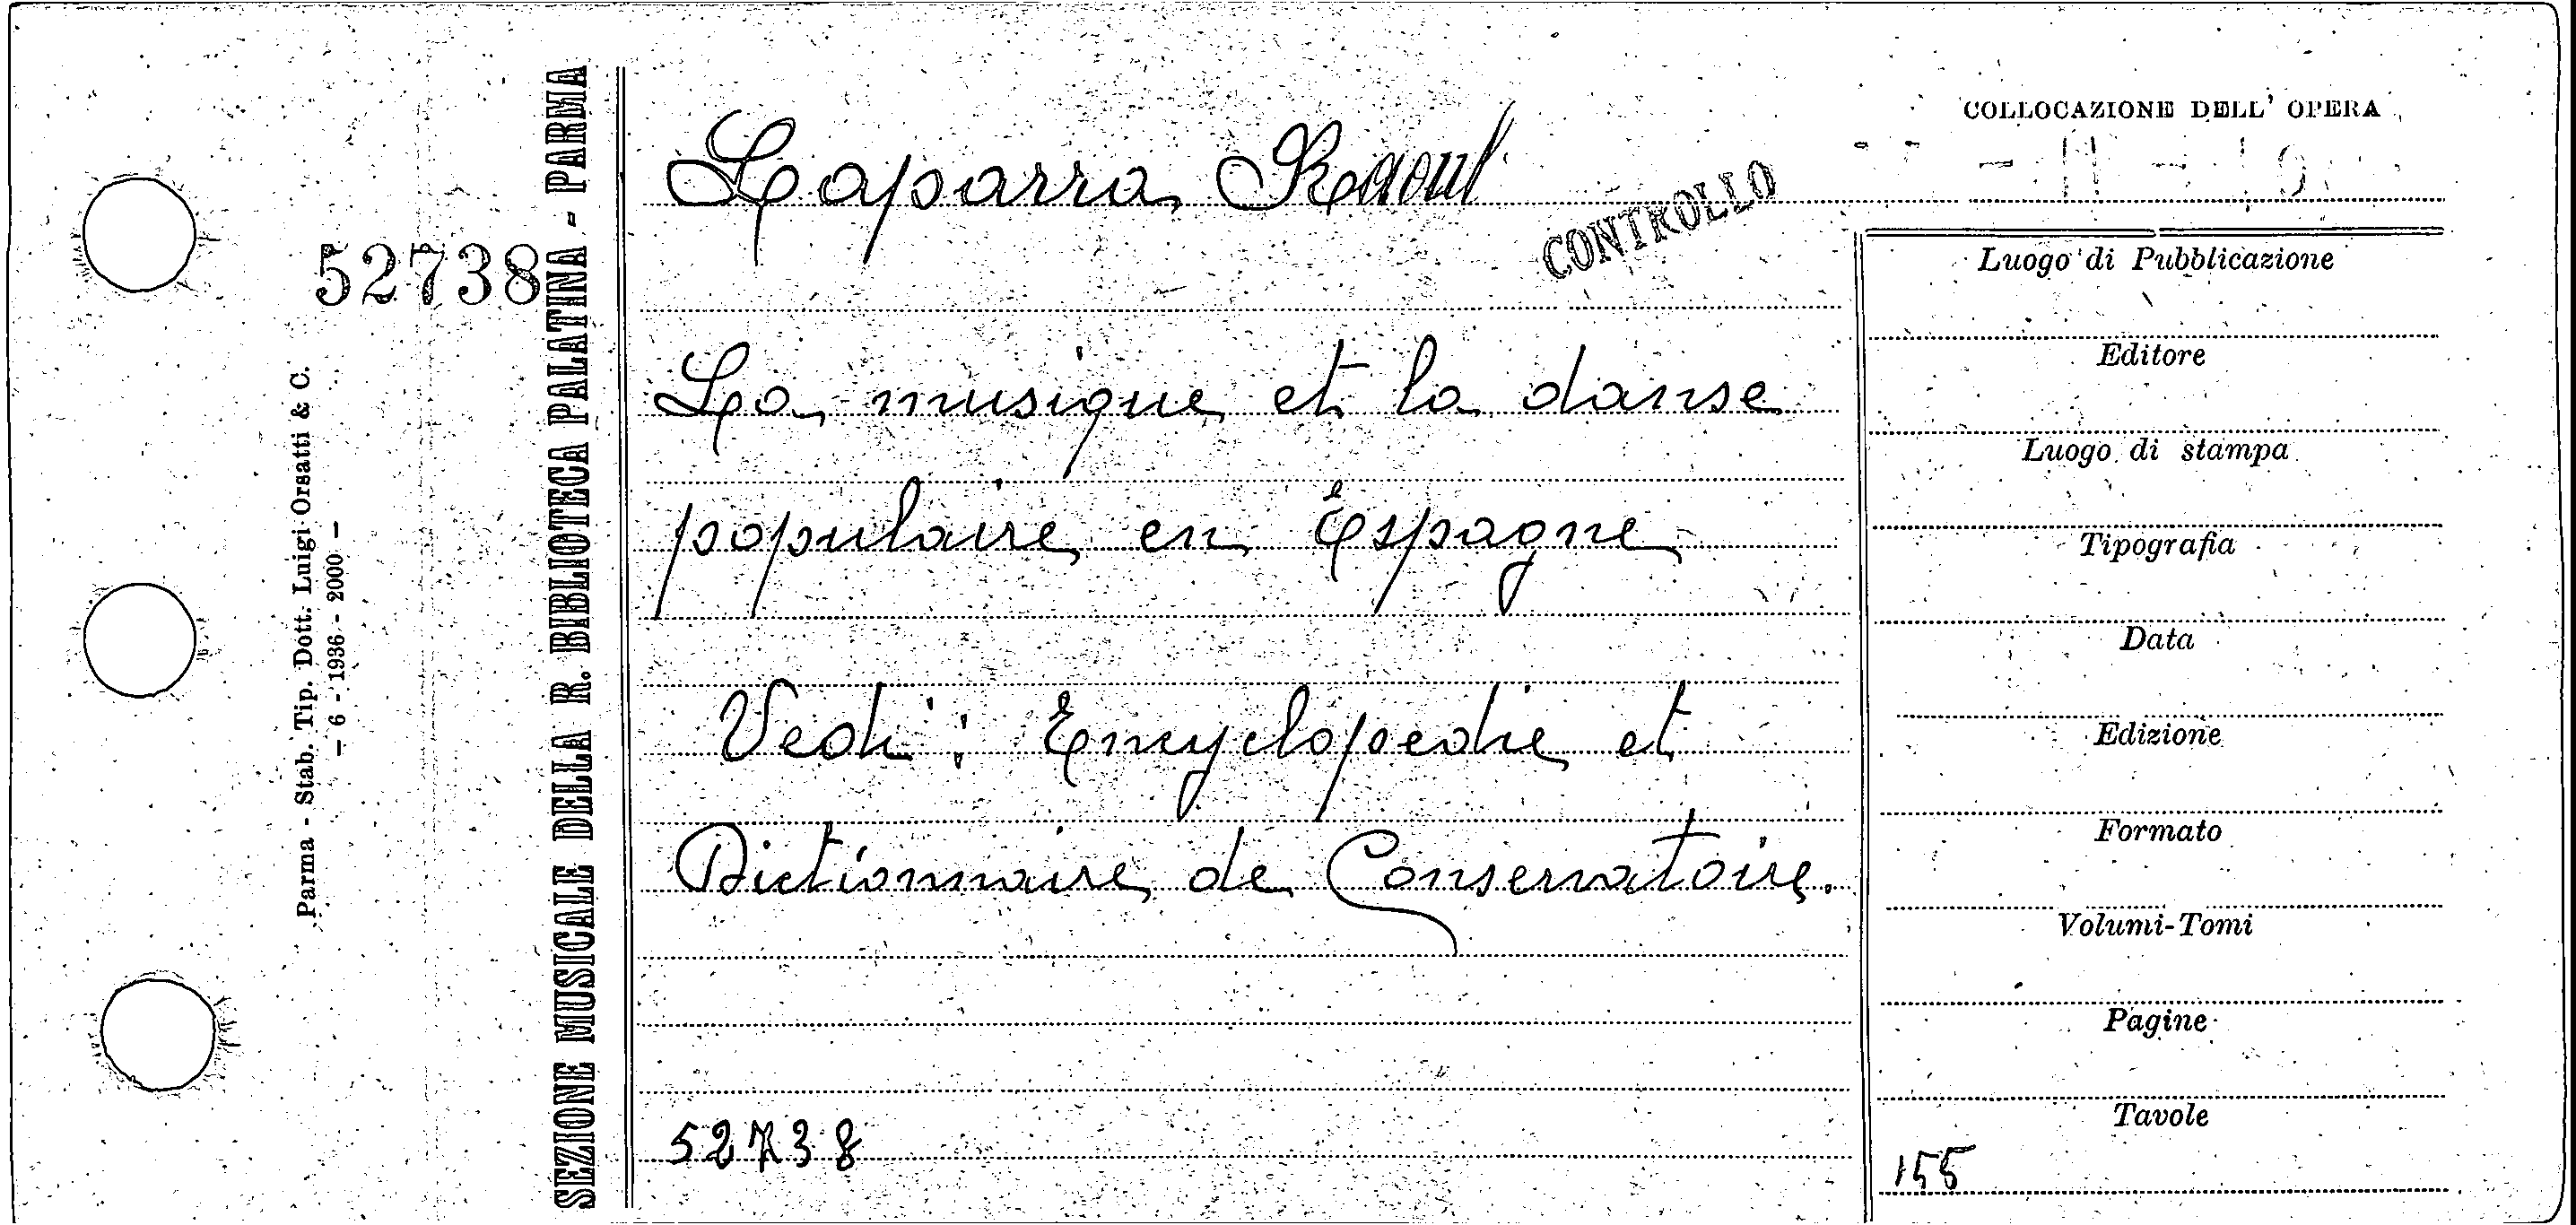 COLLOCAZIONE DELL' OPERA
Laparra Raoul
CONTROLLO
52738
SEZIONE MUSICALE DELLA R. BIBLIOTECA PALATINA - PARMA
Parma - Stab. Tip. Dott. Luigi Orsatti & C.
- 6 - 1936 - 2000 -
La musique et la danse
populaire en Espagne
Vedi: Encyclopedie et
Dictionnaire de Conservatoire.
52738
Luogo di Pubblicazione
Editore
Luogo di stampa
Tipografia
Data
Edizione
Formato
Volumi-Tomi
Pagine
Tavole
155